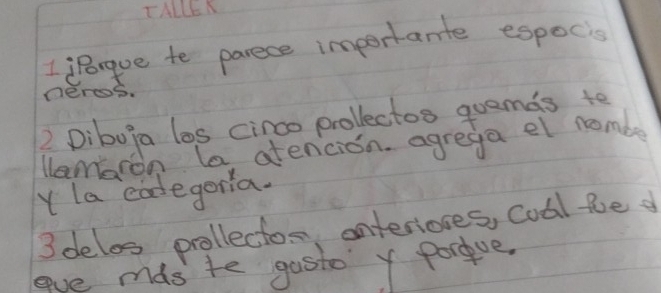 TALLER
1 ¡Porque te parece importante espocis
néros.
2 Dibuja los cinco prollectos quemás te
llamarón la atención. agrega el nombe
y la categoria.
3 delos prollectos anteriores, cual fue d
que más te gusto y porque.